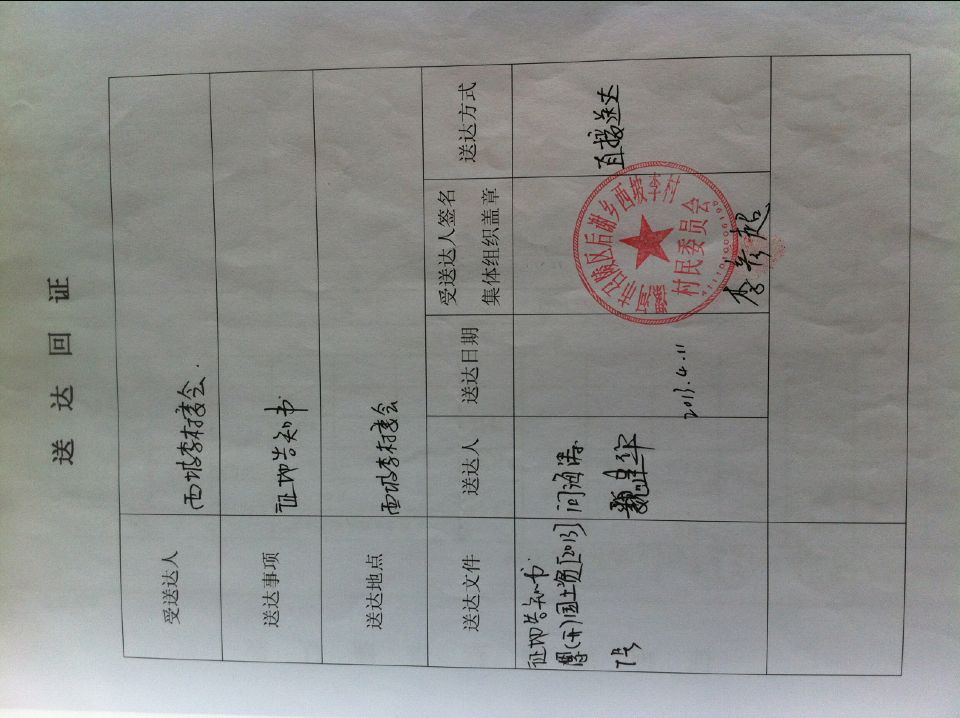 送达回证
受送达人
西坡李村委会.
送达事项
征地告知书
送达地点
西坡李村委会
送达文件
送达人
送达日期
受送达人签名
集体组织盖章
送达方式
征地告知书
国土资[2013]
7号
闫海涛
2013.4.11
区后谢乡西坡李村
村民委员会
直接送达